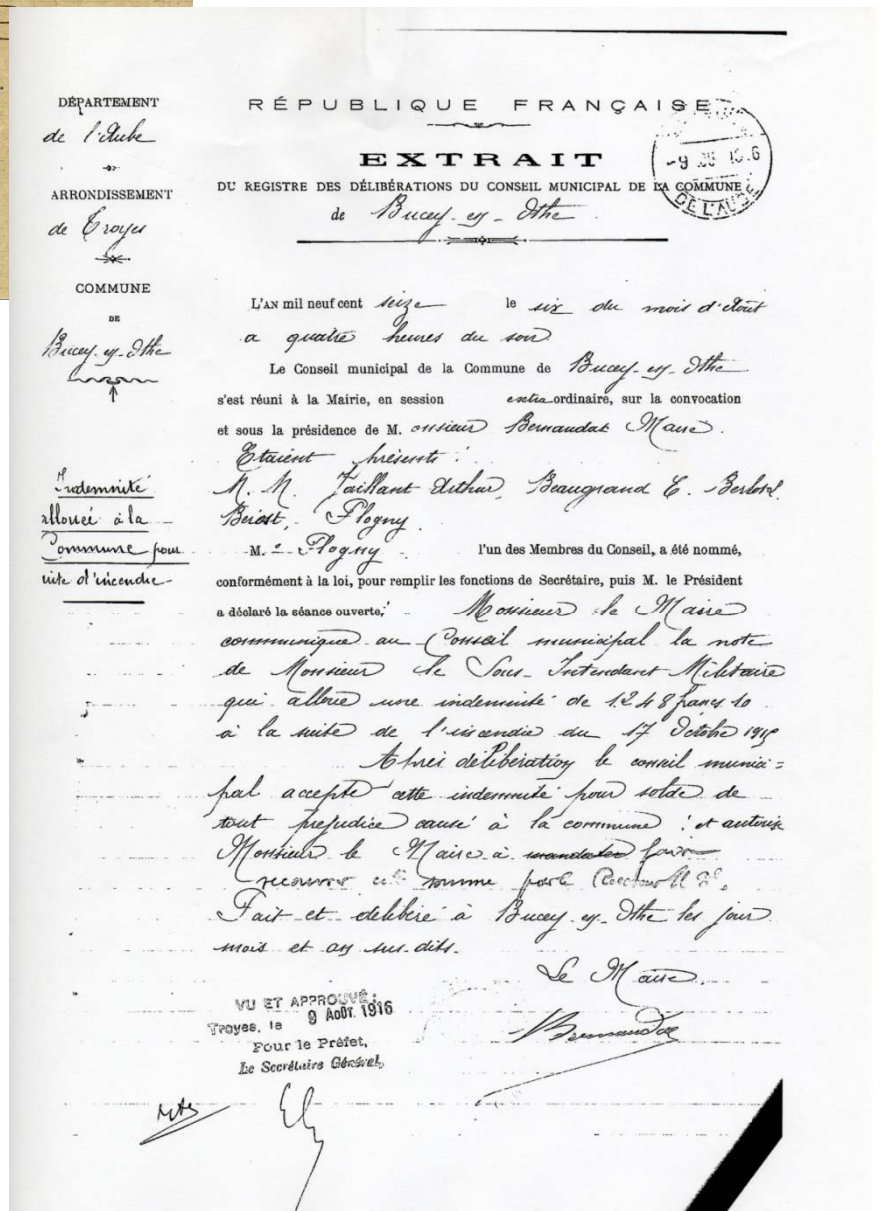 DÉPARTEMENT
de l'Aube
ARRONDISSEMENT
de Troyes
COMMUNE
DE
Bucey-en-Othe
Indemnité
allouée à la
Commune pour
suite d'incendie
RÉPUBLIQUE FRANÇAISE
EXTRAIT
DU REGISTRE DES DÉLIBÉRATIONS DU CONSEIL MUNICIPAL DE LA COMMUNE
de Bucey-en-Othe
DE L'AUBE
L'AN mil neuf cent seize le six du mois d'Aout
a quatre heures du soir
Le Conseil municipal de la Commune de Bucey-en-Othe
s'est réuni à la Mairie, en session extra ordinaire, sur la convocation
et sous la présidence de M. onsieur Bernaudat Maire.
Etaient présents :
M. M. Jaillant Arthur, Beaugrand E.
Flogny
M. Flogny l'un des Membres du Conseil, a été nommé,
conformément à la loi, pour remplir les fonctions de Secrétaire, puis M. le Président
a déclaré la séance ouverte, Monsieur le Maire
communique au Conseil municipal la note
de Monsieur le Sous-Intendant Militaire
qui alloue une indemnité de 1248 francs 10
à la suite de l'incendie du 17 Octobre 1915
Après délibération le conseil munici=
pal accepte cette indemnité pour solde de
tout préjudice causé à la commune : et autorise
Monsieur le Maire à mandater faire
recouvrer cette somme par le
Fait et délibéré à Bucey-en-Othe les jour
mois et an sus-dits.
Le Maire
Bernaudat
VU ET APPROUVÉ :
Troyes, le 9 AOÛT 1916
Pour le Préfet,
Le Secrétaire Général,